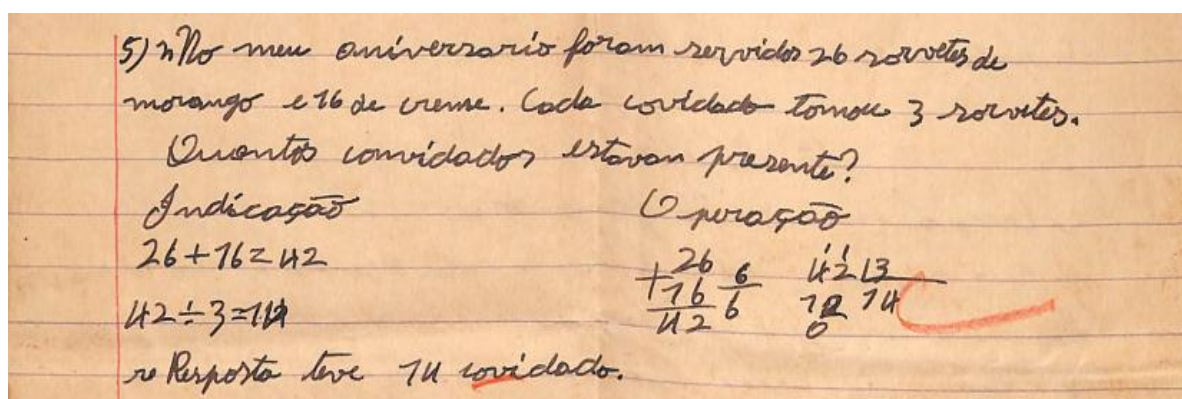 5) No meu aniversario foram servidos 26 sorvetes de
morango e 16 de creme. Cada covidado tomou 3 sorvetes.
Quantos convidados estavan presente?
Indicação
Operação
26+16=42
42÷3=14
+26 6 42 |3
16 6 12 14
42 0
Resposta teve 14 covidado.